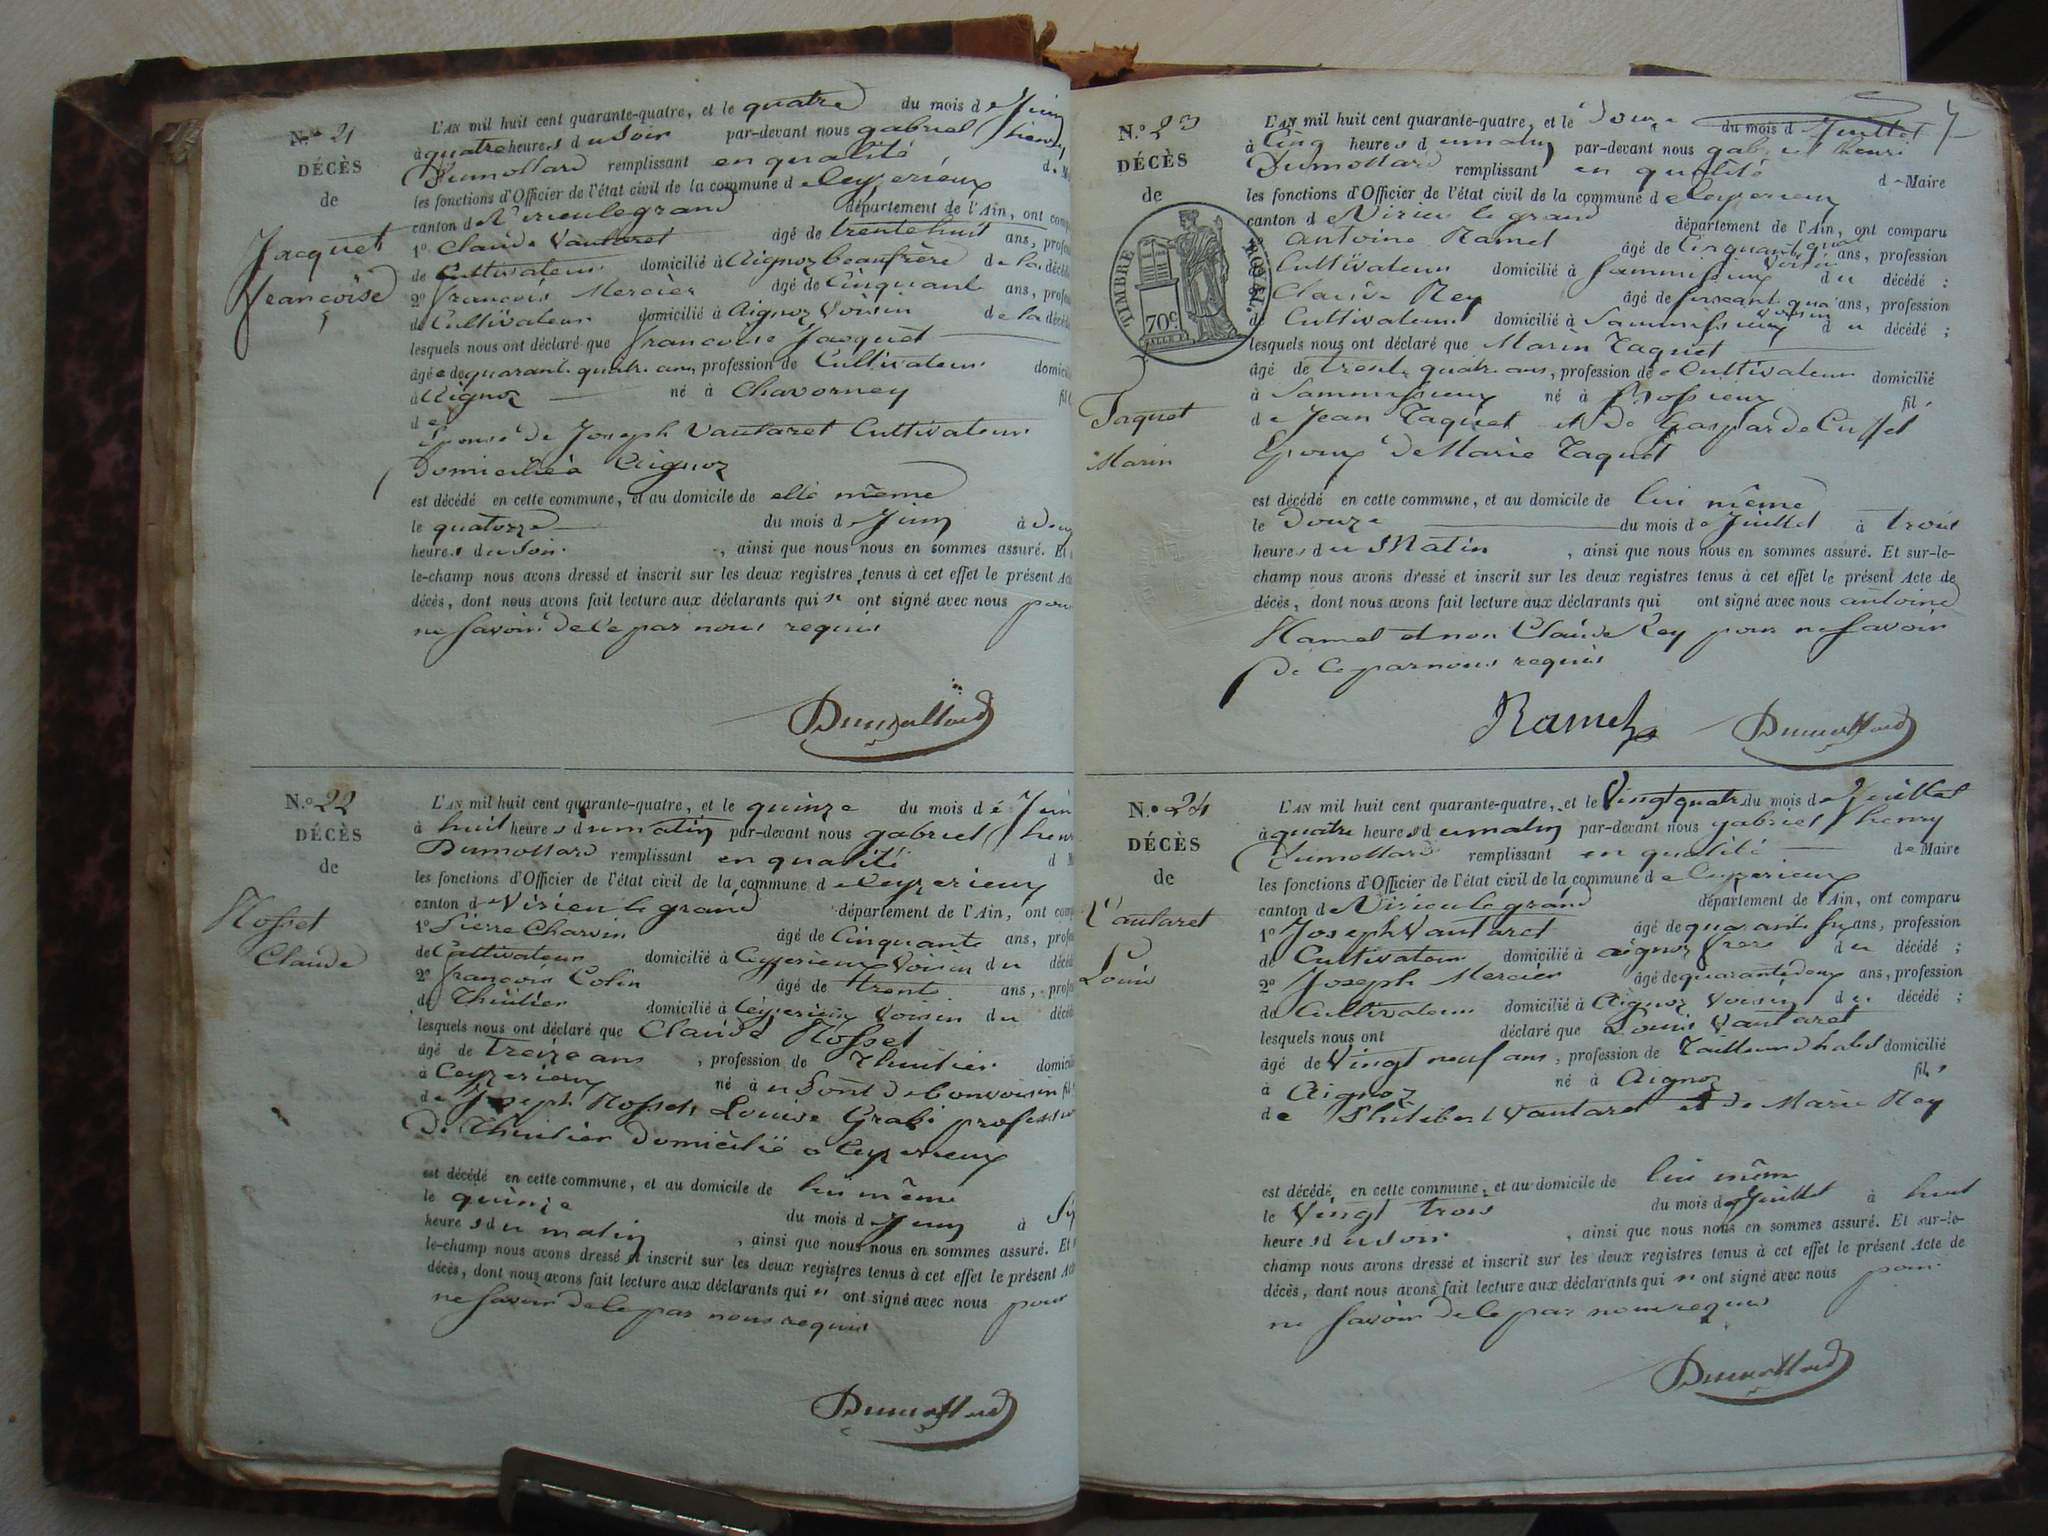 N.° 21
DÉCÈS
de
Jacquet
Françoise
L'AN mil huit cent quarante-quatre, et le quatre du mois de Juin
à quatre heures du soir par-devant nous gabriel henry
Dumollard remplissant en qualité de M
les fonctions d'Officier de l'état civil de la commune de Ceyzerieux
canton de Virieulegrand département de l'Ain, ont comp
1° Claude Vautaret âgé de trente huit ans, profes
de Cultivateur domicilié à Aignoz beaufrère de la décéd
2° François Mercier âgé de Cinquante ans, profes
de Cultivateur domicilié à Aignoz Voisin de la décéd
lesquels nous ont déclaré que francoise Jacquet
âgée de quarante quatre ans, profession de Cultivateur domicil
à Aignoz né à Chavorney fil
de
épouse de Joseph Vautaret Cultivateur
Domicilié à Aignoz
est décédé en cette commune, et au domicile de elle même
le quatorze du mois de Juin à deux
heures du soir, ainsi que nous nous en sommes assuré. Et
le-champ nous avons dressé et inscrit sur les deux registres tenus à cet effet le présent Acte
décès, dont nous avons fait lecture aux déclarants qui n' ont signé avec nous pour
ne savoir de Ce par nous requis
Dumollard
N.° 22
DÉCÈS
de
Rosset
Claude
L'AN mil huit cent quarante-quatre, et le quinze du mois de Juin
à huit heures du matin par-devant nous gabriel henr
Dumollard remplissant en qualité d M
les fonctions d'Officier de l'état civil de la commune de Ceyzerieux
canton de Virieu le grand département de l'Ain, ont comp
1° Pierre Charvin âgé de Cinquante ans, profes
de Cultivateur domicilié à Ceyzerieux Voisin du décéd
2° françois Colin âgé de trente ans, profes
de Thuilier domicilié à Ceyzerieux Voisin du décéd
lesquels nous ont déclaré que Claude Rosset
âgé de treize ans, profession de Thuilier domicil
à Ceyzerieux né à u Pont de bonvoisin fil
de Joseph Rosset Louise professi
De Thuilier Domicilié a Ceyzerieux
est décédé en cette commune, et au domicile de lui même
le quinze du mois de Juin à Six
heures du matin, ainsi que nous nous en sommes assuré. Et
le-champ nous avons dressé et inscrit sur les deux registres tenus à cet effet le présent Acte
décès, dont nous avons fait lecture aux déclarants qui n' ont signé avec nous pour
ne savoir de Ce par nous requis
Dumollard
N.° 23
DÉCÈS
de
TIMBRE ROYAL.
70 c.
Taquet
Marin
L'AN mil huit cent quarante-quatre, et le Douze du mois de Juillet
à Cinq heures du matin par-devant nous gabriel henri
Dumollard remplissant en qualité de Maire
les fonctions d'Officier de l'état civil de la commune de Ceyzerieux
canton de Virieu le grand département de l'Ain, ont comparu
Antoine Ramel âgé de Cinquante quatre ans, profession
Cultivateur domicilié à Sammissieux Voisin du décédé ;
Claude Rey âgé de soixante quatre ans, profession
de Cultivateur domicilié à Sammissieux Voisin du décédé ;
lesquels nous ont déclaré que Marin Taquet
âgé de trente quatre ans, profession de Cultivateur domicilié
à Sammissieux né à Rossieux fil s
de Jean Taquet et De Gasparde Cusset
Epoux de Marie Taquet
est décédé en cette commune, et au domicile de lui même
le Douze du mois de Juillet à trois
heures du Matin, ainsi que nous nous en sommes assuré. Et sur-le-
champ nous avons dressé et inscrit sur les deux registres tenus à cet effet le présent Acte de
décès, dont nous avons fait lecture aux déclarants qui ont signé avec nous antoine
Ramel et non Claude Rey pour ne savoir
De Ce par nous requis
Ramel Dumollard
N.° 24
DÉCÈS
de
Vautaret
Louis
L'AN mil huit cent quarante-quatre, et le Vingt quatre du mois de Juillet
à quatre heures du matin par-devant nous gabriel henry
Dumollard remplissant en qualité de Maire
les fonctions d'Officier de l'état civil de la commune de Ceyzerieux
canton de Virieu le grand département de l'Ain, ont comparu
1° Joseph Vautaret âgé de quarante six ans, profession
de Cultivateur domicilié à aignoz frere du décédé ;
2° Joseph Mercier âgé de quarante deux ans, profession
de Cultivateur domicilié à Aignoz Voisin du décédé ;
lesquels nous ont déclaré que Louis Vautaret
âgé de Vingt neuf ans, profession de Tailleur d'habit domicilié
à Aignoz né à Aignoz fil s
de Philibert Vautaret et de Marie Rey
est décédé en cette commune, et au domicile de lui mêm
le Vingt trois du mois de Juillet à huit
heures du soir, ainsi que nous nous en sommes assuré. Et sur-le-
champ nous avons dressé et inscrit sur les deux registres tenus à cet effet le présent Acte de
décès, dont nous avons fait lecture aux déclarants qui n' ont signé avec nous pour
ne savoir de Ce par nous requis
Dumollard